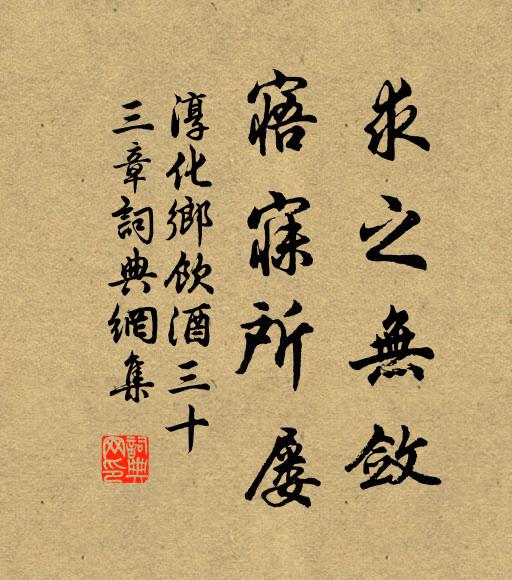 求之無斁
寤寐所屡
淳化鄉飲酒三十
三章詞典網集
詞典
网印